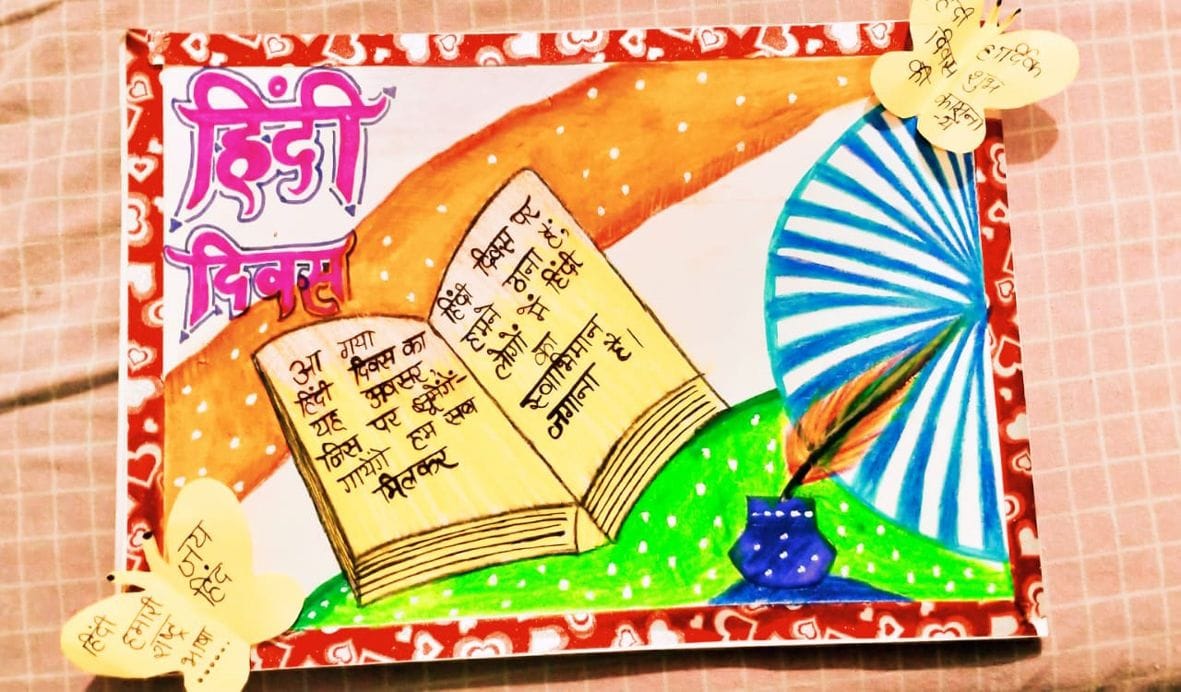 हिंदी
दिवस
हिंदी
दिवस
की
हार्दिक
शुभ
कामना
-ये
आ गया
हिंदी दिवस का
यह अवसर
जिस पर झूमेंगें-
गायेंगे हम सब
मिलकर
हिंदी दिवस पर
हमने ठाना है,
लोगों में हिंदी
का
स्वाभिमान
जगाना है-
जय
हिंद
हिंदी
हमारी
राष्ट्र
भाषा ......